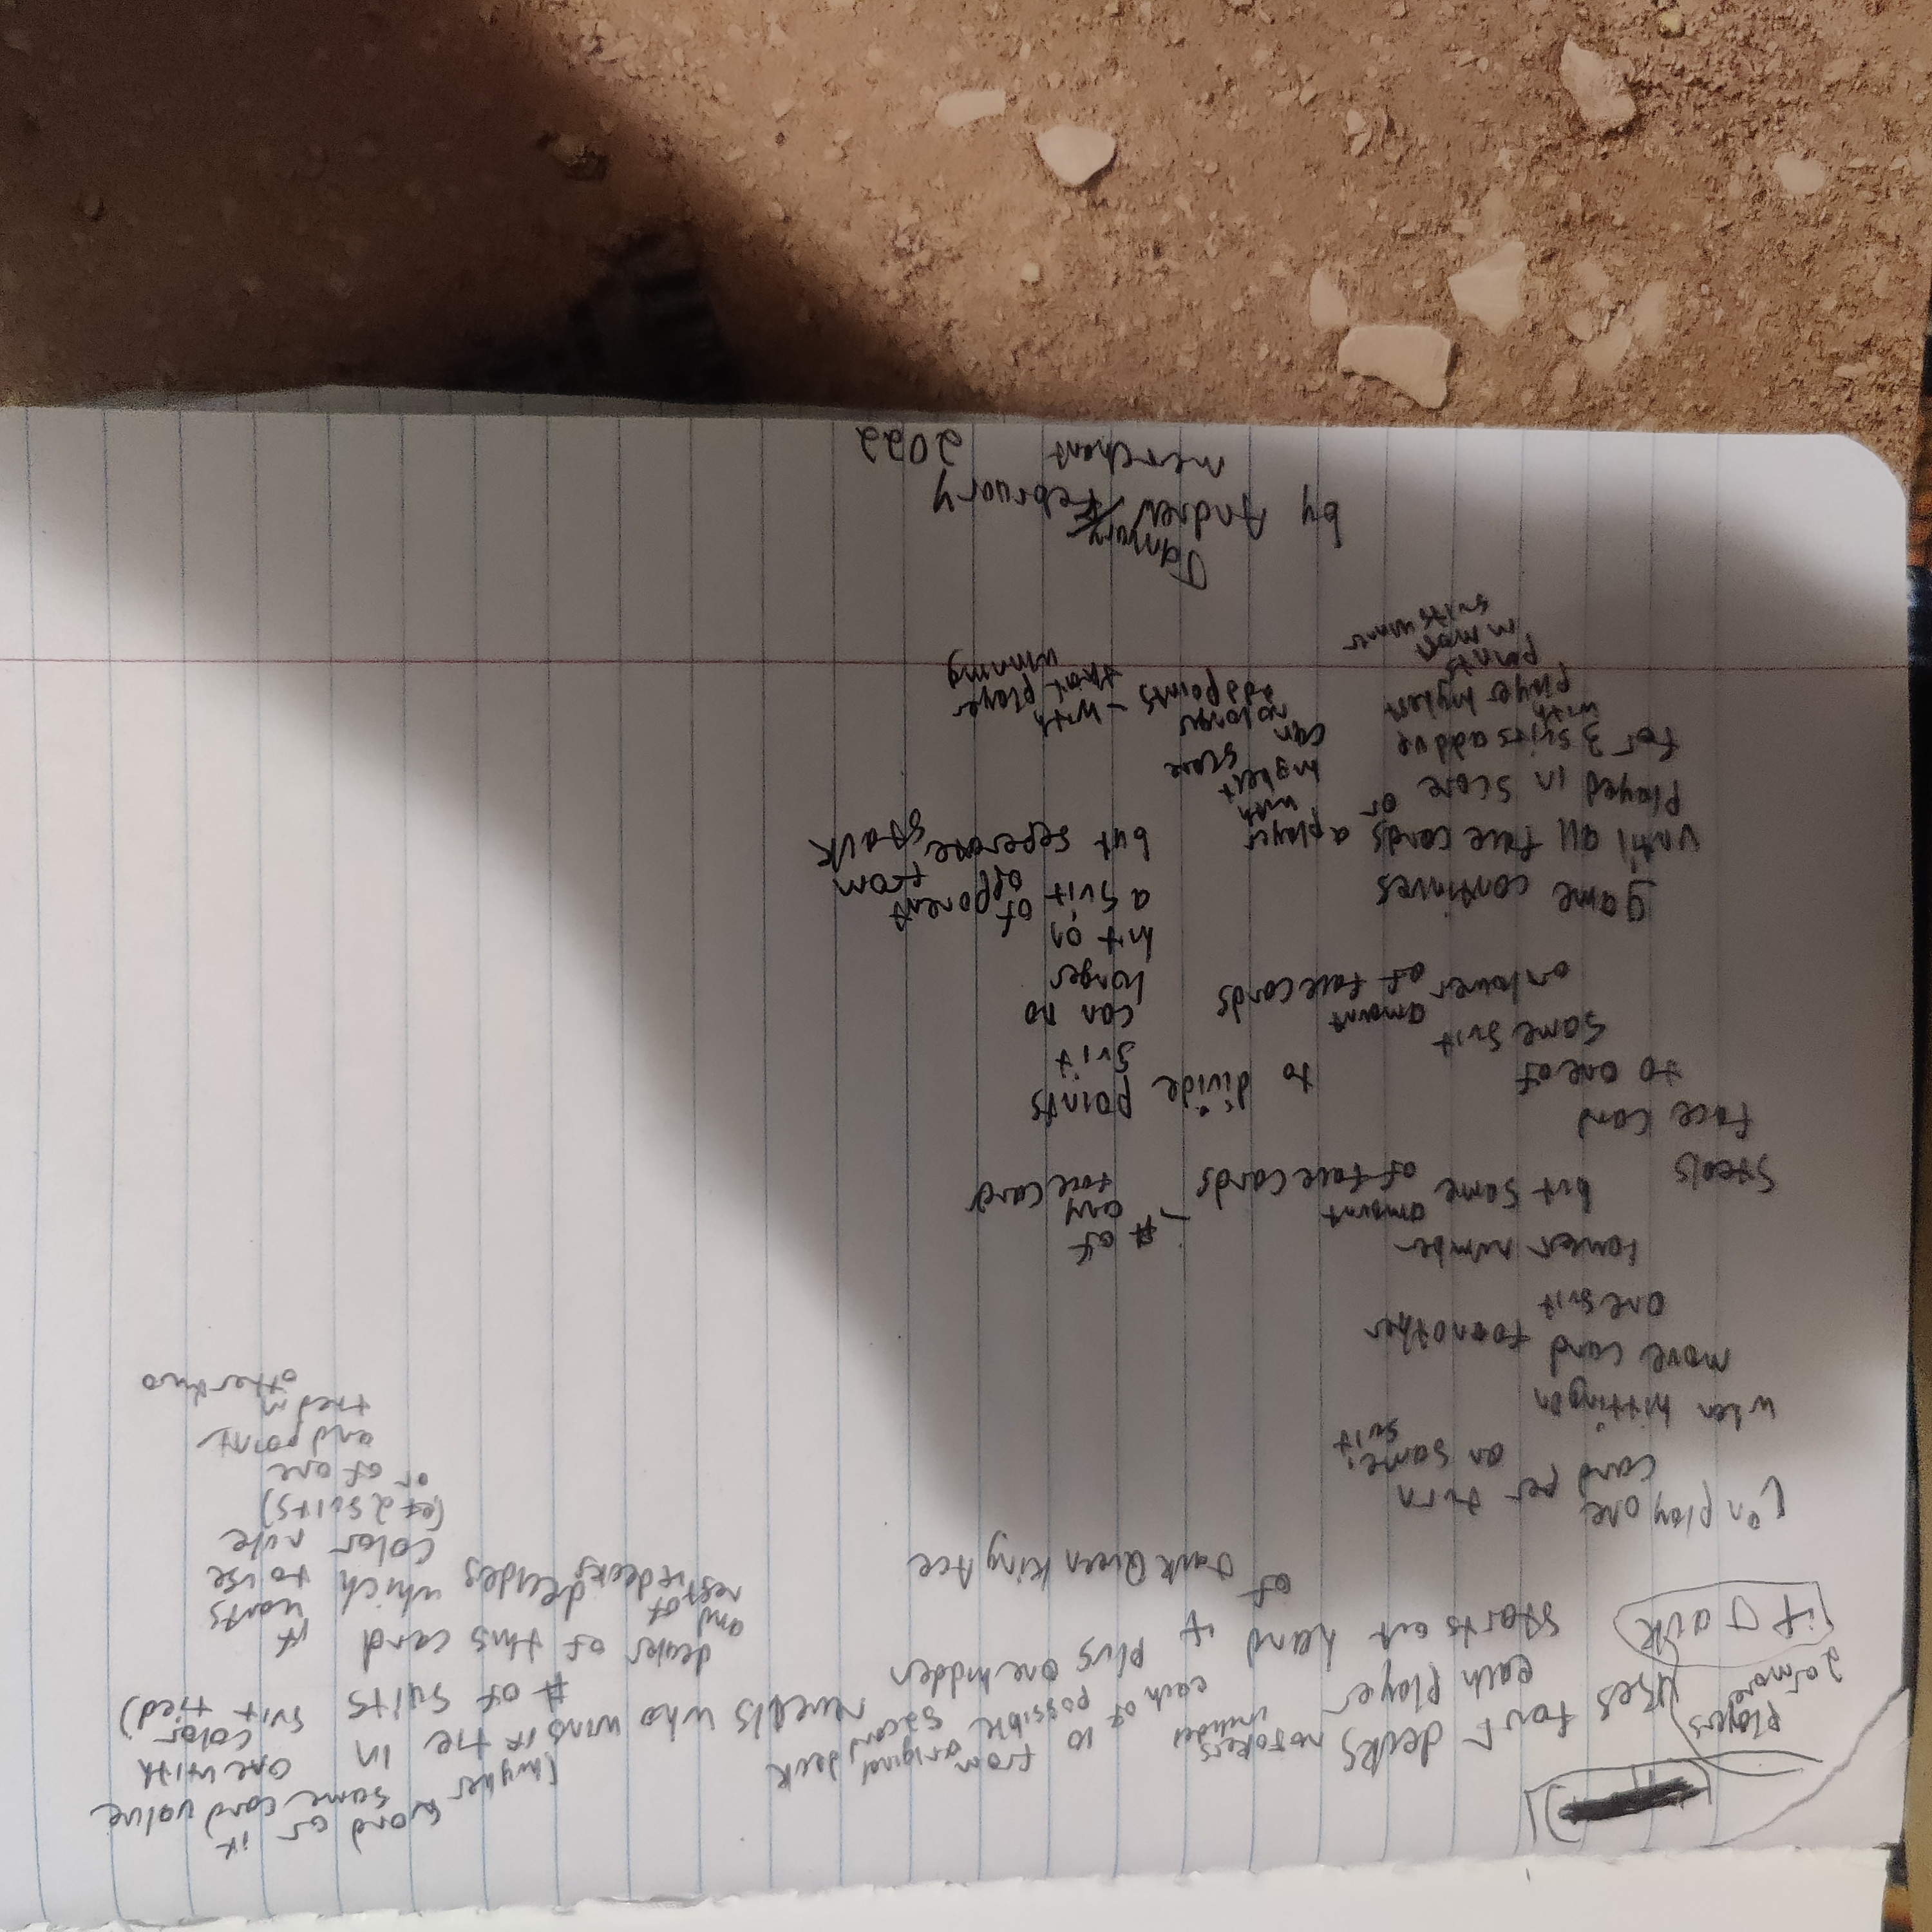 2 or more
Players
it Jack
uses four decks no Jokers
included
each player
starts out hand
of
Jack Queen King Ace
each of
plus one hidden
from original deck
10 possible
reveals who wins if tie in
# of suits
dealer of this card
and
rest of
deck decides which
if
wants
to use
color rule
(of 2 suits)
or of one
and point
tied in
other two
(higher
card or if
same card value
one with
color
suit tied)
Can play one
card per turn
on same
suit
when hitting on
move card to another
one suit
lower number
but same amount
of face cards
- # of
any
face card
Steals
face card
to one of
same suit
on lower amount
of face cards
to divide points
suit
can no
longer
hit on
a suit
of
opponent
from
but seperate
stack
game continues
until all face cards
played in score or
a player
with
highest
score
can
no longer
add points
- with
that player
winning
for 3 suits add up
with
player highest
points
in most
suits wins
by Andrew
merchant
January/February
2022